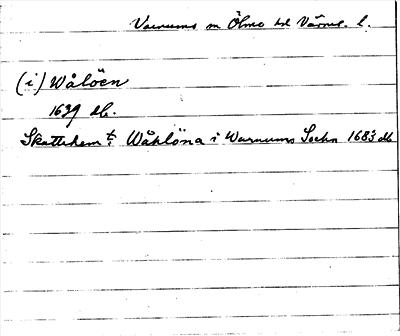 Varnums sn Ölme hd Värml. l.
(i) Wålöen
1639 db.
Skattehem t. Wåhlöna i Warnums Sochn 1683 db